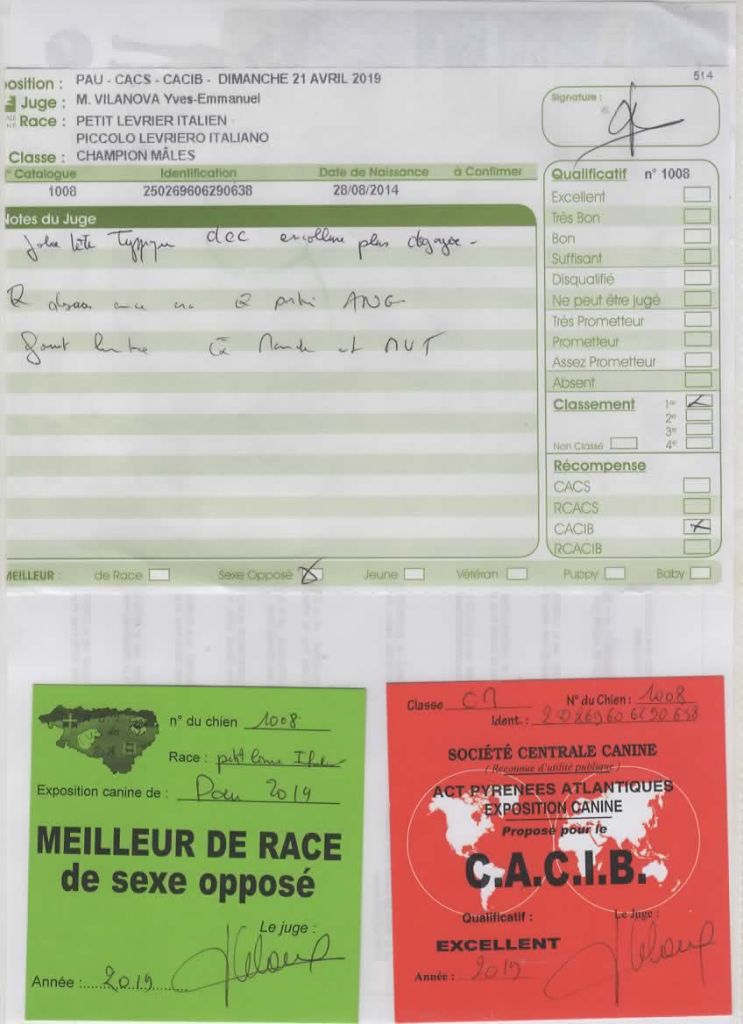 514
osition : PAU - CACS - CACIB - DIMANCHE 21 AVRIL 2019
Juge : M. VILANOVA Yves-Emmanuel
Race : PETIT LEVRIER ITALIEN
PICCOLO LEVRIERO ITALIANO
Classe : CHAMPION MÂLES
Signature :
° Catalogue Identification Date de Naissance à Confirmer
1008 250269606290638 28/08/2014
Notes du Juge
tête typique encolure plus dégagée -
ANG
et MVT
Qualificatif n° 1008
Excellent
Très Bon
Bon
Suffisant
Disqualifié
Ne peut être jugé
Très Prometteur
Prometteur
Assez Prometteur
Absent
Classement 1er
2e
3e
Non Classé 4e
Récompense
CACS
RCACS
CACIB
RCACIB
MEILLEUR : de Race Sexe Opposé Jeune Vétéran Puppy Baby
n° du chien 1008
Race :
Exposition canine de : Pau 2019
MEILLEUR DE RACE
de sexe opposé
Le juge :
Année : 2019
Classe N° du Chien : 1008
Ident. :
SOCIÉTÉ CENTRALE CANINE
( Reconnue d'utilité publique )
ACT PYRENEES ATLANTIQUES
EXPOSITION CANINE
Proposé pour le
C.A.C.I.B.
Qualificatif : Le Juge :
EXCELLENT
Année : 2019